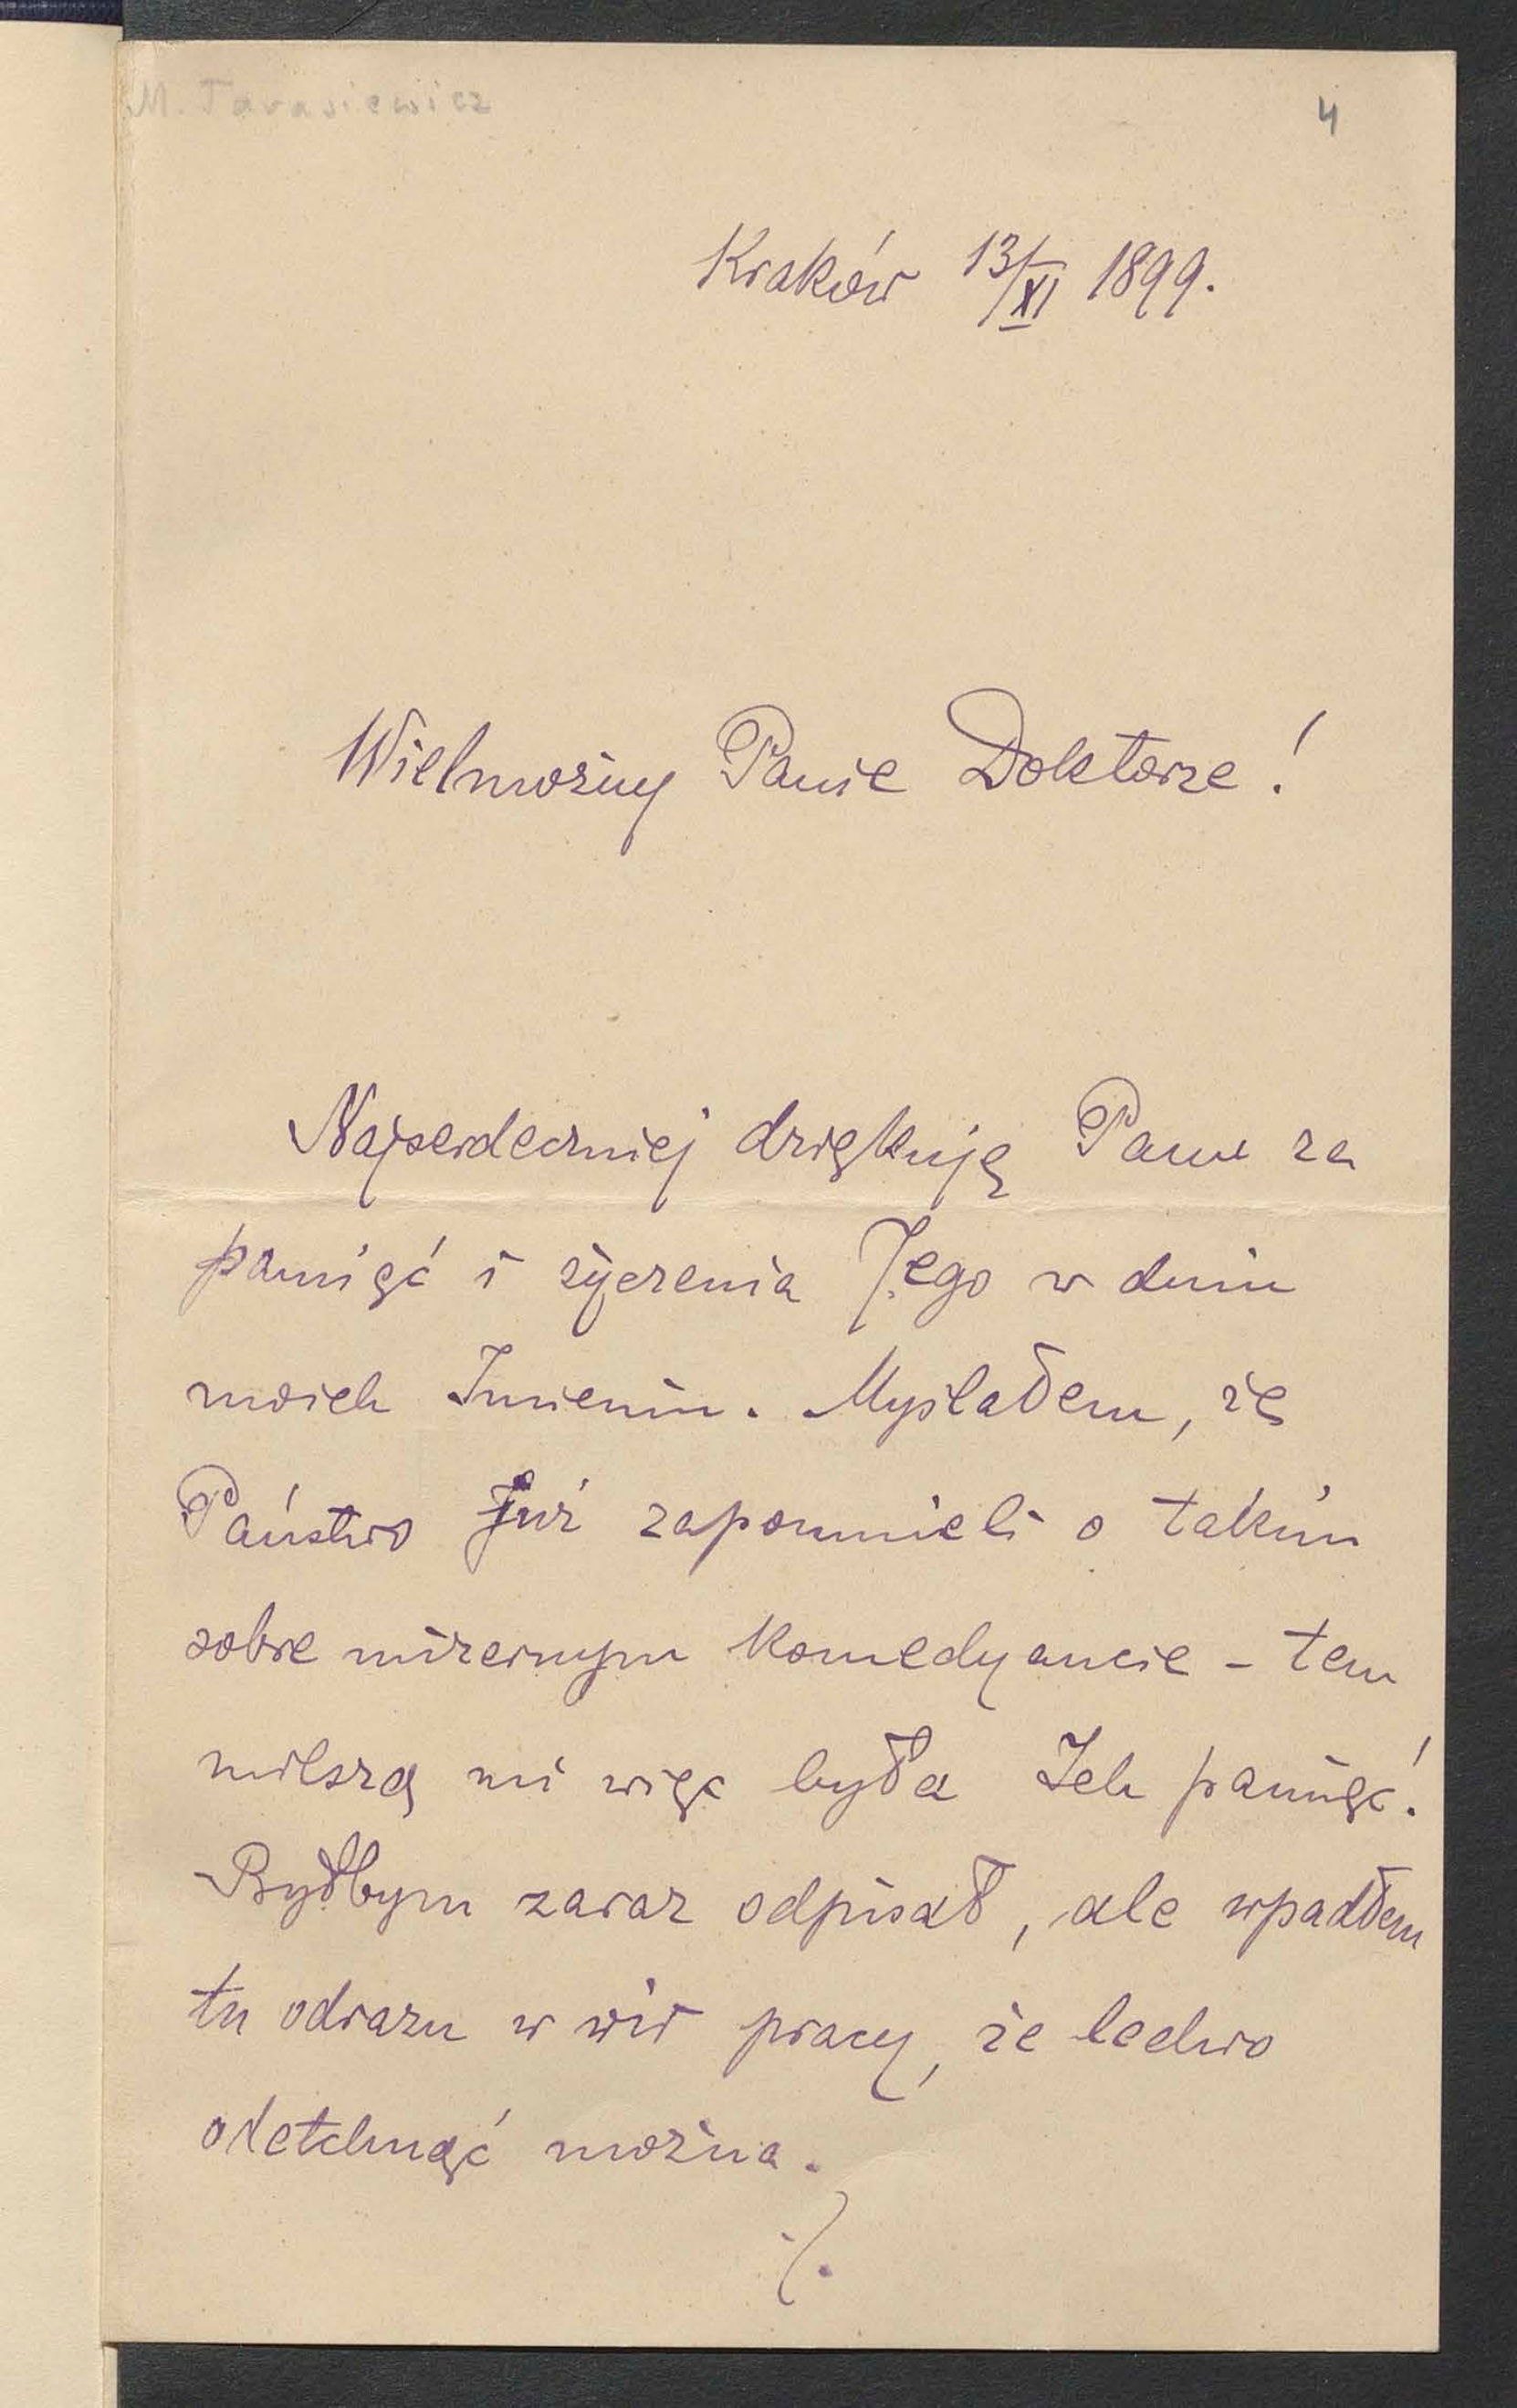 M. Tarasiewicz
4
Kraków 13/XI 1899.
Wielmożny Panie Doktorze!
Najserdeczniej dziękuję Panu za
pamięć i życzenia Jego w dniu
moich Imienin. Myślałem, że
Państwo już zapomnieli o takim
sobie mizernym komedyancie – tem
milszą mi więc była Ich pamięć!
Byłbym zaraz odpisał, ale wpadłem
tu odrazu w wir pracy, że ledwo
odetchnąć można.
./.